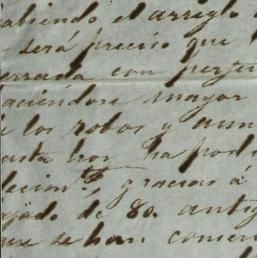 abiendo el arreglo
será preciso que
errada con perju
aciéndose mayor
los robos y aun
asta hoy ha pod
lecion.te, gracias á
jado de 80. antig
que se han comen